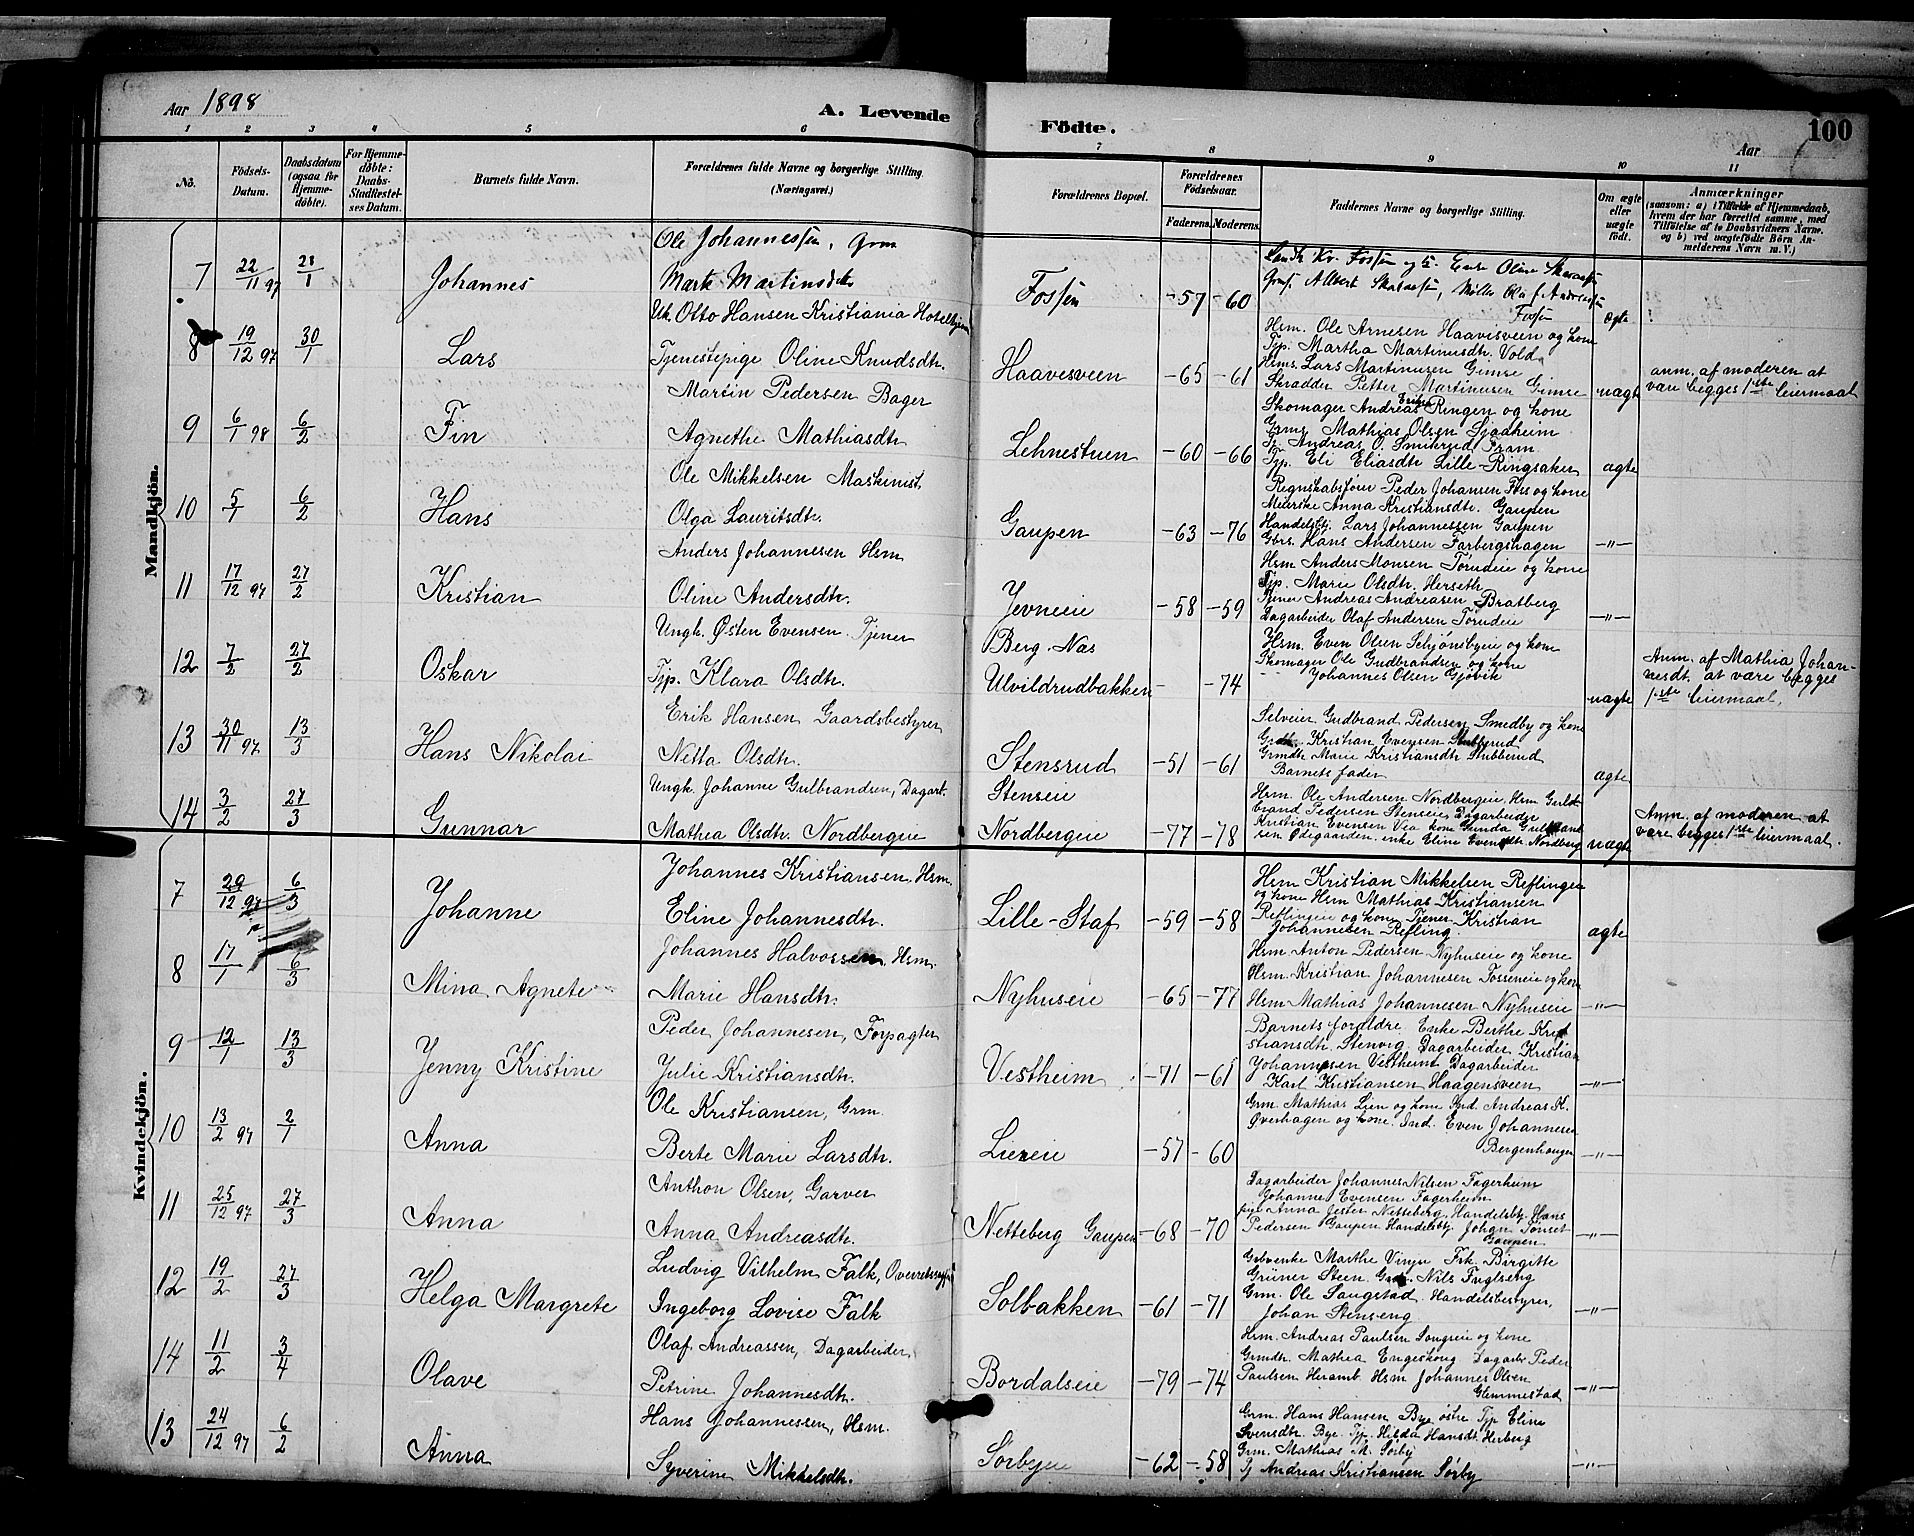 Aar 1898 A. Levende Födte. 100
Aar
1 2 3 4 5 6 7 8 9 10 11
No. Födsels-Datum. Daabsdatum (ogsaa for Hjemme-döbte). For Hjemme-döbte: Daabs-Stadfæstel-ses Datum. Barnets fulde Navn. Forældrenes fulde Navne og borgerlige Stilling. (Næringsvei.) Forældrenes Bopæl. Forældrenes Födselsaar. Faderens. Moderens. Faddernes Navne og borgerlige Stilling. Om ægte eller uægte födt. Anmærkninger (saasom: a) i Tilfælde af Hjemmedaab, hvem der har forrettet samme, med Tilföielse af to Daabsvidners Navne. og b) ved uægtefödte Börn Anmelderens Navn m. V.)
Mandkjön.
7 22/11 97 23/1 Johannes
Ole Johannessen, Grm
Mart. Martinsdtr
Fossen -57 -60
Fossen ægte
8 19/12 97 30/1 Lars
Uk. Otto Hansen Kristiania
Tjenestepige Oline Knudsdtr.
Haavesveen -65 -61
Hsm. Ole Arnesen Haavisveen og kone
Tjp. Martha Martinusdtr. Vold
Hrms. Lars Martinusen Gimse
Skradder Petter Martinusen Gimse
uægt
anm. af moderen at
være begges 1ste leiermaal
9 6/1 98 6/2 Fin
Martin Pedersen Bager
Agnethe Mathiasdtr
Lehnestuen -60 -66
Skomager Andreas Ringen og kone
Grms. Mathias Olsen Sjødheim
Tj. Andreas O. Smikrud Fram
Tjp. Eli Eliasdtr Lille-Ringsaker
ægte
10 5/1 6/2 Hans
Ole Mikkelsen Maskinist.
Olga Lauritsdtr.
Gaupen -63 -76
Regnskabsfører Peder Johansen Fos og kone
Meierske Anna Kristiansdtr. Gaupen
Handelsbtj. Lars Johannessen Gaupen
Gbrs. Hans Andersen Farbergshagen
-"-
11 17/12 97 27/2 Kristian
Anders Johannesen Hsm
Oline Andersdtr.
Jevneeie -58 -59
Hsm Anders Monsen Torudeie og kone
Tjp. Marie Olsdtr. Herseth
Tjener Andreas Andreasen Bratberg
Dagarbeider Olaf Andersen Torudeie
-"-
12 7/2 27/2 Oskar
Ungk. Østen Evensen Tjener
Tjp. Klara Olsdtr.
Berg. Næs
Ulvildrudbakken - -74
Hsm. Even Olsen Schjønsbyeie og kone
Skomager Ole Gudbrandsen og kone
Johannes Olsen Gjøvik
uægte
Anm. af Mathia Johan-
nesdt. at være begges
1ste leiermaal.
13 30/11 97 13/3 Hans Nikolai
Erik Hansen Gaardsbestyrer
Netta Olsdtr.
Stensrud -51 -61
Selveier Gudbrand Pedersen Smedby og kone
Grdtr. Kristian Evensen Stubberud
Grmdtr. Marie Kristiansdtr Stubberud
Barnets fader
ægte
14 3/2 27/3 Gunnar
Ungk. Johanne Gulbrandsen, Dagarb.
Mathea Olsdtr. Nordbergeie
Stenseie
Nordbergeie -77 -78
Hsm. Ole Andersen Nordbergeie, Hsm Guld-
brand Pedersen Stenseie, Dagarbeider
Kristian Evensen Vea kone Gunda Gulbrand
sen Ødegaarden. enke Eline Evensdtr. Nordberg
uægt
Anm. af moderen at
være begges 1ste leiermaal.
Kvindekjön.
7 29/12 97 6/3 Johanne
Johannes Kristiansen, Hsm.
Eline Johannesdtr.
Lille-Staf -59 -58
Hsm Kristian Mikkelsen Reflingeie
og kone Hsm Mathias Kristiansen
Reflingeie og kone Tjener Kristian
Johannesen Refling.
ægte
8 17/1 6/3 Mina Agnete
Johannes Halvorssen, Hsm.
Marie Hansdtr.
Nyhuseie -65 -77
Hsm. Anton Pedersen Nyhuseie og kone
Hsm. Kristian Johannesen Fosseneie og kone
Hsm Mathias Johannesen Nyhuseie
-"-
9 12/1 13/3 Jenny Kristine
Peder Johannesen, Forpagter
Julie Kristiansdtr.
Vestheim -71 -61
Barnets forældre. Enke Berthe Krist
iansdtr. Stenvig Dagarbeider Kristian
Johannesen Vestheim Dagarbeider
Karl Kristiansen Haagensveen
-"-
10 13/2 97 2/1 Anna
Ole Kristiansen, Grm.
Berte Marie Larsdtr.
Liereie -57 -60
Grm. Mathias Lien og kone Ind. Andreas K.
Øverhagen og kone. Ind. Even Johannesen
Bergenhaugen
-"-
11 25/12 97 27/3 Anna
Anthon Olsen, Garver
Anna Andreasdtr.
Netteberg Gaupen -68 -70
Dagarbeider Johannes Nilsen Fagerheim
Johanne Evensen Fagerheim
pige Anna Jester Netteberg, Handelsbtj. Hans
Pedersen Gaupen Handelsbtj. Johan Tonset
Gaupen
-"-
12 19/2 27/3 Helga Margrete
Ludvig Vilhelm Falk, Overretssagf
Ingeborg Lovise Falk
Solbakken -61 -71
Gbvenke Marthe Vinju Frk. Birgitte
Grüner Steen Nils Fuglseng
Grm. Ole Saugstad. Handelsbestyrer,
Johan Stenseng
-"-
14 11/2 3/4 Olave
Olaf Andreassen, Dagarbeider,
Petrine Johannesdtr.
Bordalseie -79 -74
Hsm. Andreas Paulsen Songseie og kone
Grmdtr. Mathea Engeskoug Dagarb. Peder
Paulsen Heramb. Hsm Johannes Olsen
Glemmestad
-"-
13 24/12 97 6/2 Anna
Hans Johannessen, Hsm.
Syverine Mikkelsdtr.
Sørbyeie -62 -58
Grm. Hans Hansen Bye østre Tjp Eline
Svensdtr. Bye. Tjp. Hilda Hansdt. Herberg
Grm. Mathias M. Sørby
Tj Andreas Kristiansen Sørby
-"-